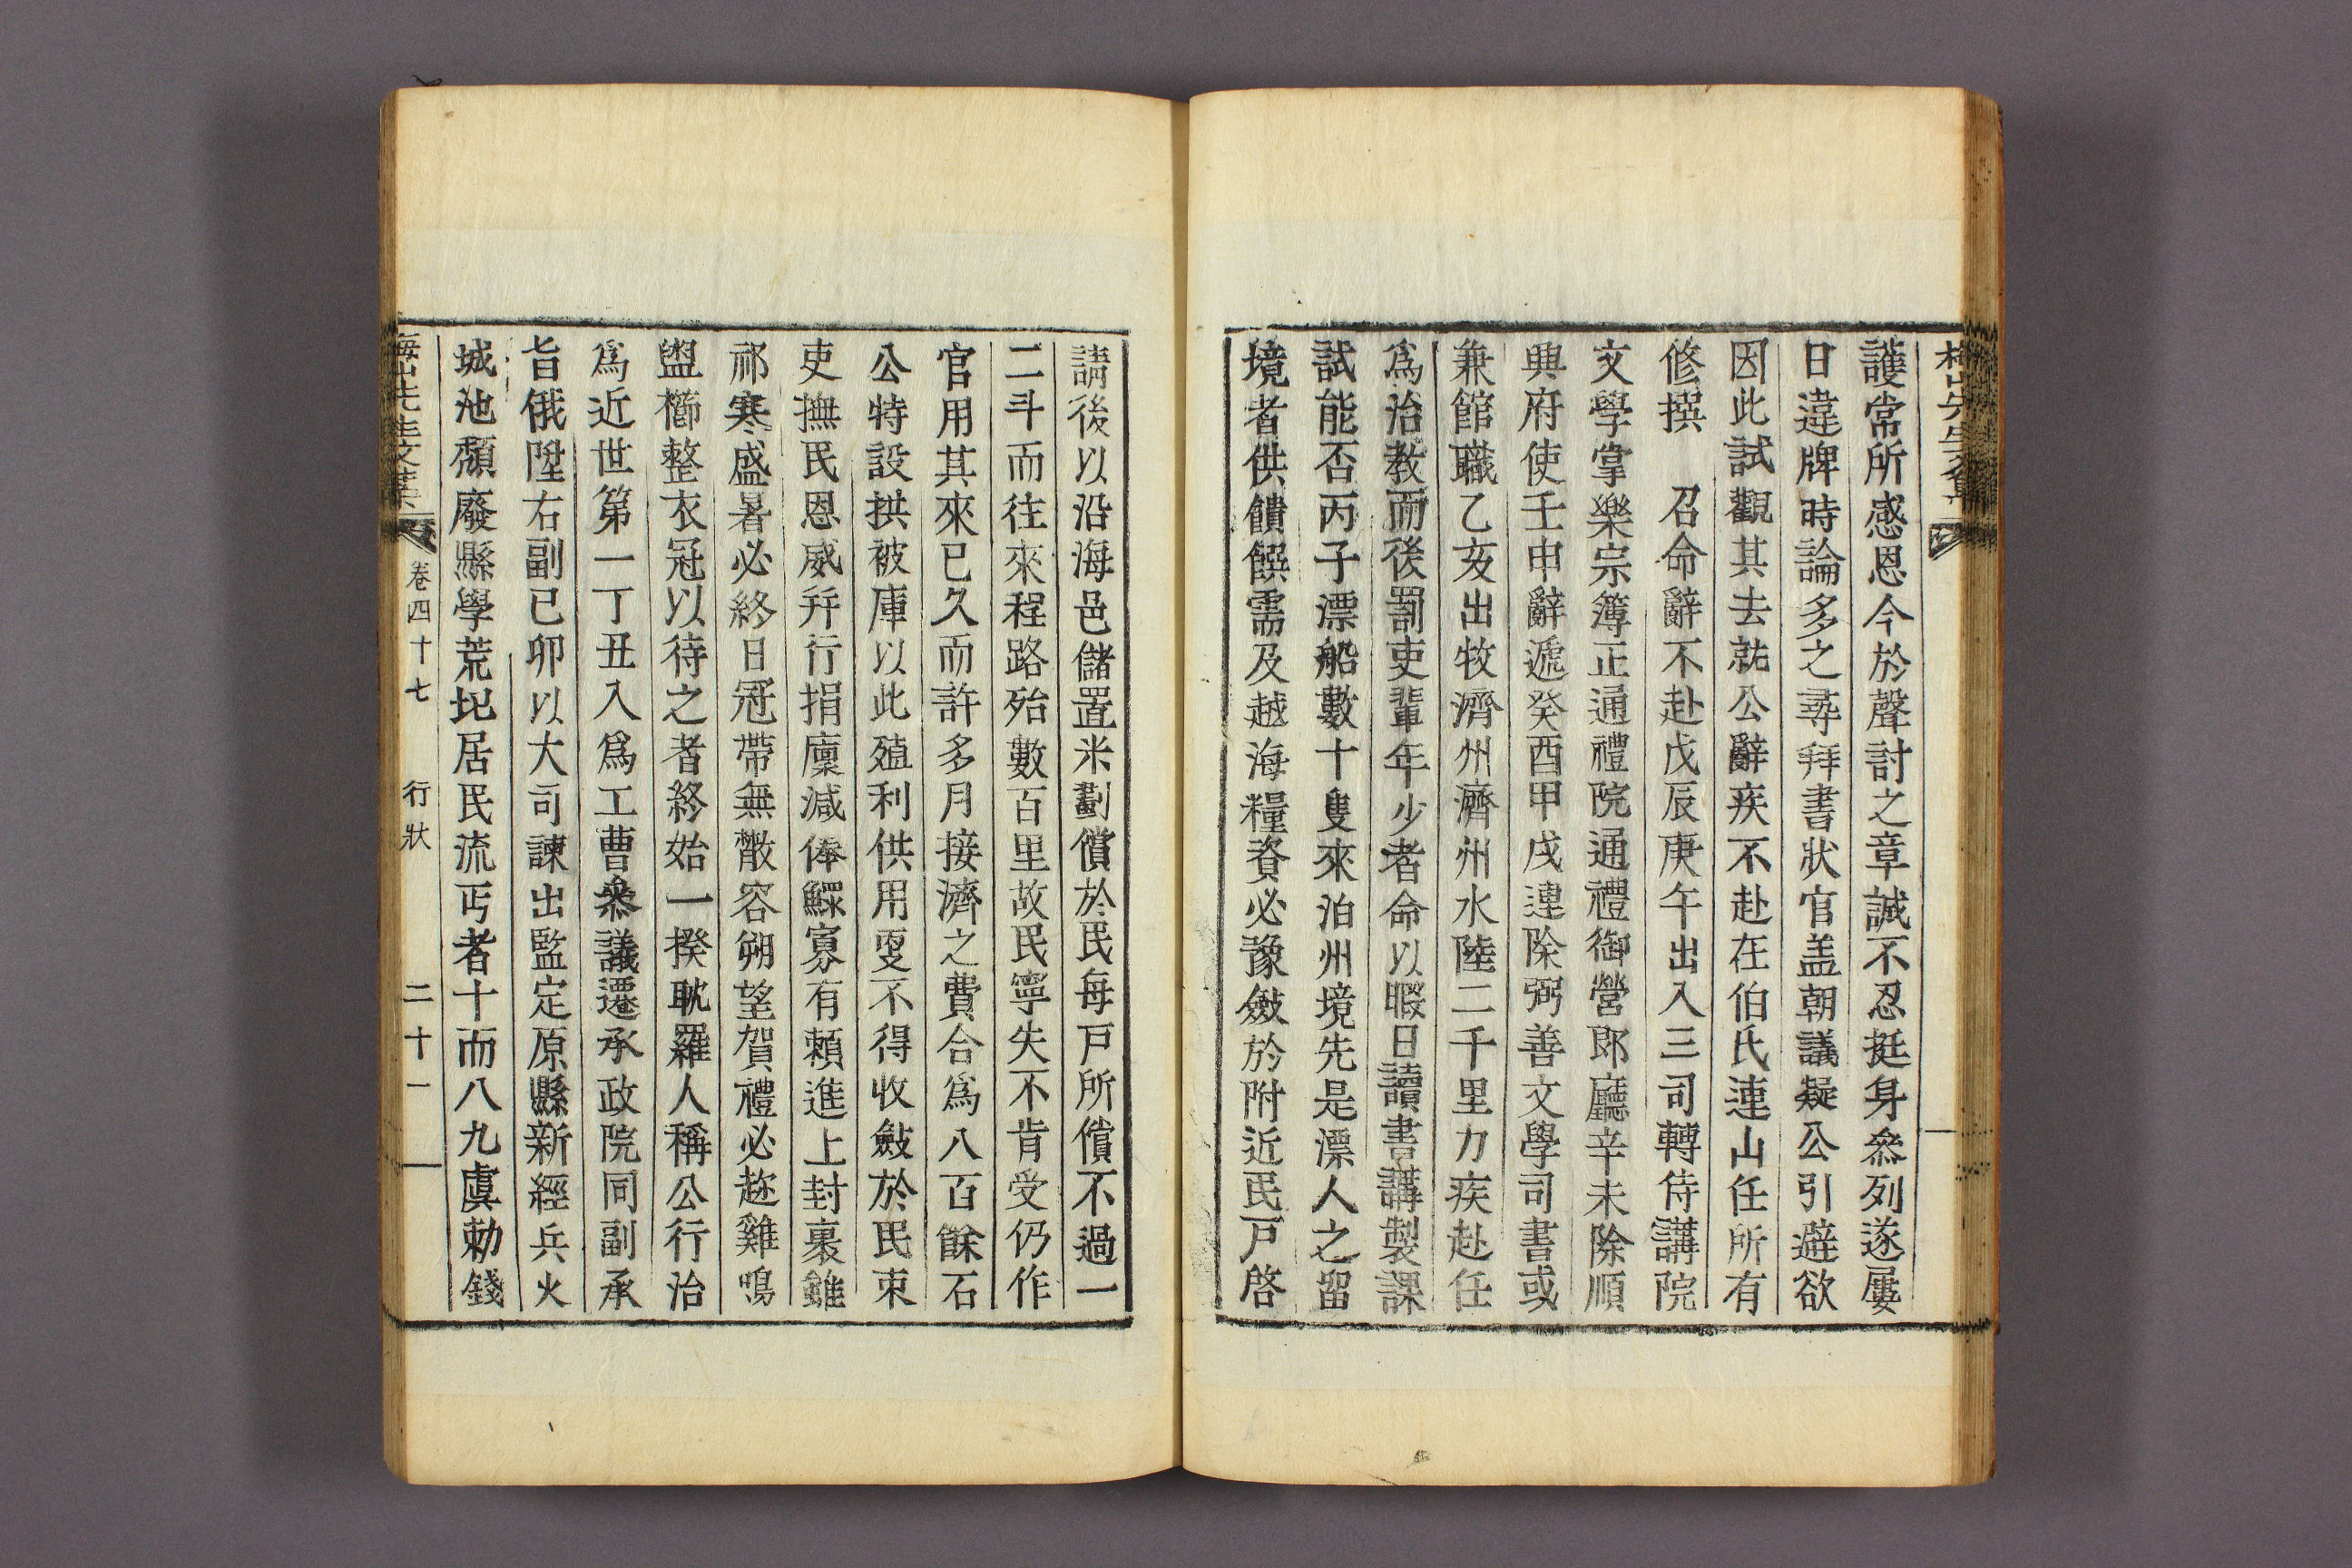 護常所感恩今於聲討之章誠不忍挺身叅列遂屢
日違牌時論多之尋拜書狀官盖朝議疑公引避欲
因此試觀其去就公辭疾不赴在伯氏連山任所有
修撰 召命辭不赴戊辰庚午出入三司轉侍講院
文學掌樂宗簿正通禮院通禮御營郞廳辛未除順
興府使壬申辭遞癸酉甲戌連除弼善文學司書或
兼館職乙亥出牧濟州濟州水陸二千里力疾赴任
爲治教而後罰吏輩年少者命以暇日讀書講製課
試能否丙子漂船數十隻來泊州境先是漂人之留
境者供饋饌需及越海糧資必豫斂於附近民戶啓
請後以沿海邑儲置米劃償於民每戶所償不過一
二斗而往來程路殆數百里故民寧失不肯受仍作
官用其來已久而許多月接濟之費合爲八百餘石
公特設拱被庫以此殖利供用更不得收斂於民束
吏撫民恩威幷行捐廩減俸鰥寡有賴進上封裹雖
祁寒盛暑必終日冠帶無懈容朔望賀禮必趂雞鳴
盥櫛整衣冠以待之者終始一揆耽羅人稱公行治
爲近世第一丁丑入爲工曹叅議遷承政院同副承
旨俄陞右副己卯以大司諫出監定原縣新經兵火
城池頹廢縣學荒圮居民流丐者十而八九虞勑錢
梅山先生文集 卷四十七 行狀 二十一